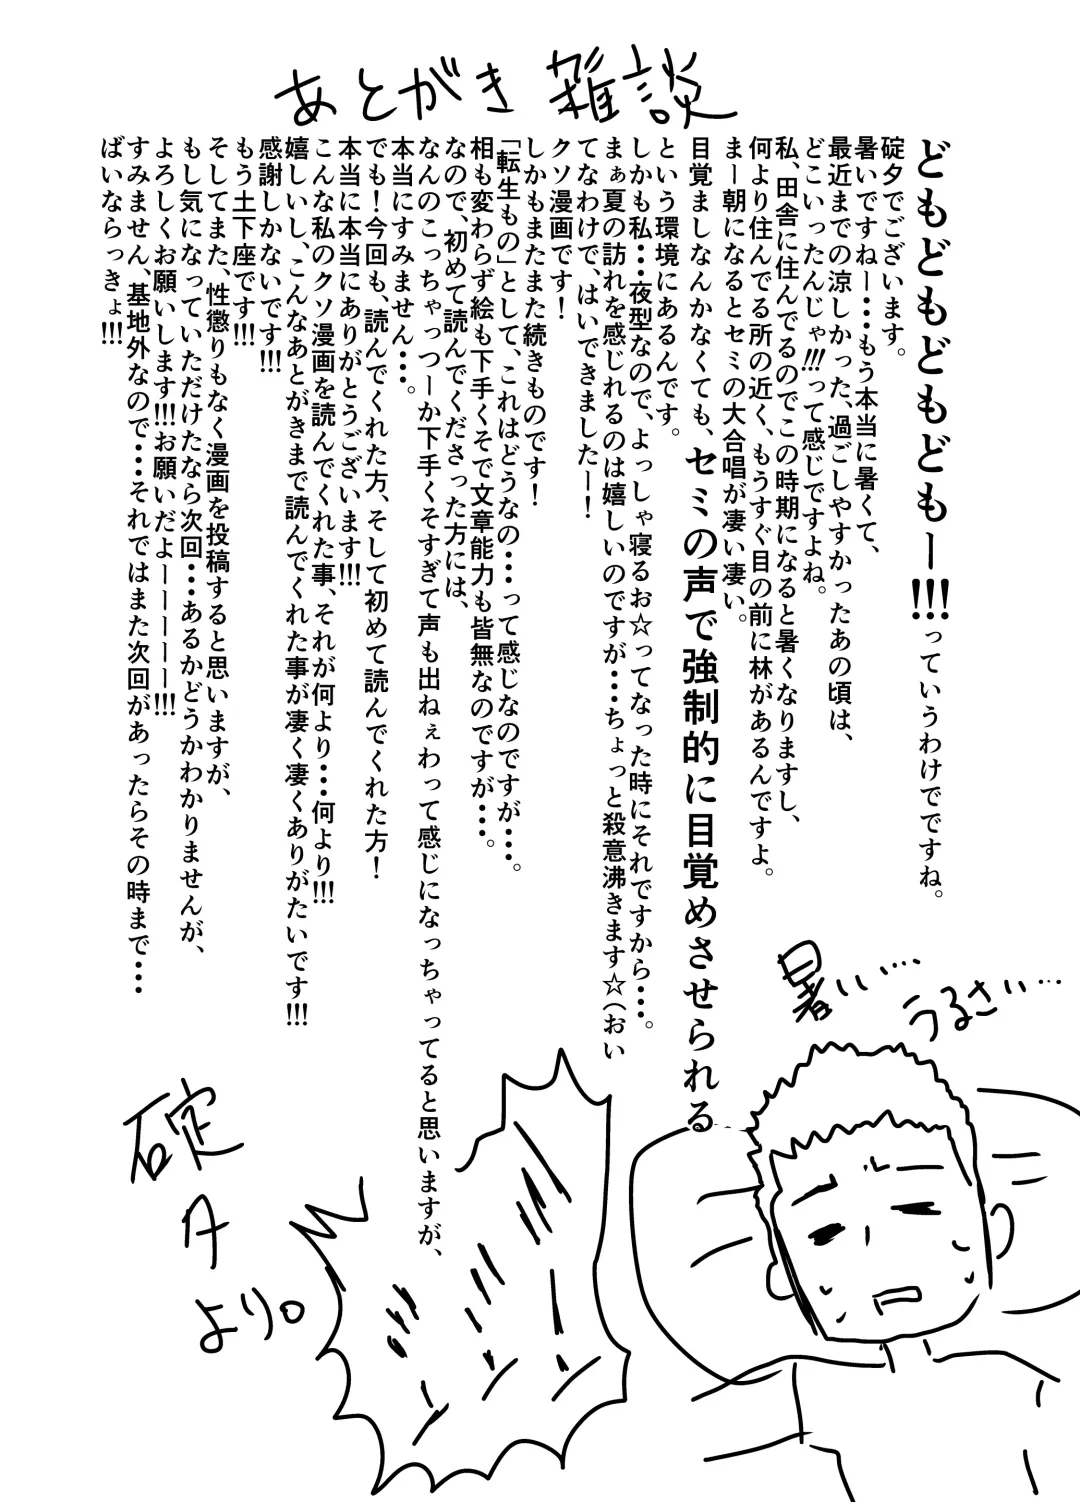 あとがき 雑談
どもどもどもどもー!!!っていうわけでですね。
碇夕でございます。
暑いですねー・・・もう本当に暑くて、
最近までの涼しかった、過ごしやすかったあの頃は、
どこいったんじゃ!!!って感じですよね。
私、田舎に住んでるのでこの時期になると暑くなりますし、
何より住んでる所の近く、もうすぐ目の前に林があるんですよ。
まー朝になるとセミの大合唱が凄い凄い。
目覚ましなんかなくても、セミの声で強制的に目覚めさせられる
という環境にあるんです。
しかも私・・・夜型なので、よっしゃ寝るお☆ってなった時にそれですから・・・。
まぁ夏の訪れを感じれるのは嬉しいのですが・・・ちょっと殺意沸きます☆(おい
てなわけで、はいできましたー!
クソ漫画です!
しかもまたまた続きものです!
「転生もの」として、これはどうなの・・・って感じなのですが・・・。
相も変わらず絵も下手くそで文章能力も皆無なのですが・・・。
なので、初めて読んでくださった方には、
なんのこっちゃっつーか下手くそすぎて声も出ねぇわって感じになっちゃってると思いますが、
本当にすみません・・・。
でも!今回も、読んでくれた方、そして初めて読んでくれた方!
本当に本当にありがとうございます!!!
こんな私のクソ漫画を読んでくれた事、それが何より・・・何より!!!
嬉しいし、こんなあとがきまで読んでくれた事が凄く凄くありがたいです!!!
感謝しかないです!!!
もう土下座です!!!
そしてまた、性懲りもなく漫画を投稿すると思いますが、
もし気になっていただけたなら次回・・・あるかどうかわかりませんが、
よろしくお願いします!!!お願いだよーーーーー!!!
すみません、基地外なので・・・それではまた次回があったらその時まで・・・
ばいならっきょ!!!
暑い…
うるさい…
ミーンミンミン
碇夕より。